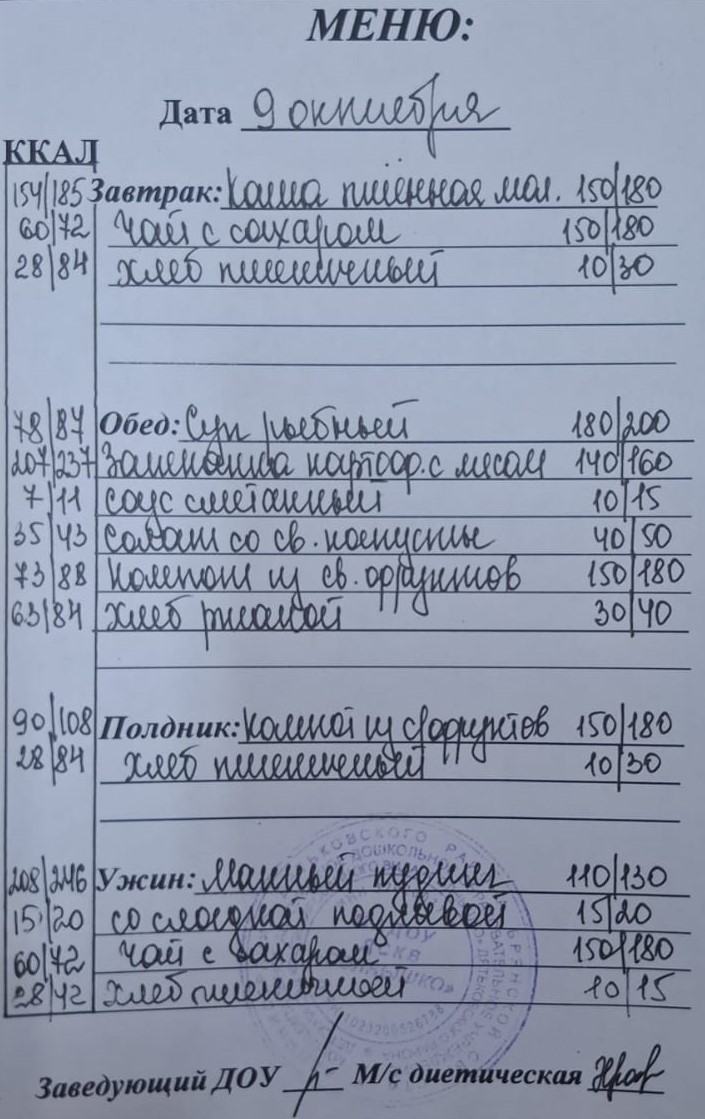 МЕНЮ:
Дата 9 октября
ККАЛ
154/185 Завтрак: Каша пшённая мол. 150/180
60/72 Чай с сахаром 150/180
28/84 Хлеб пшеничный 10/30
78/87 Обед: Суп рыбный 180/200
207/237 Запеканка картоф. с мясом 140/160
7/11 соус сметанный 10/15
35/43 Салат со св. капусты 40/50
73/88 Компот из св. фруктов 150/180
63/84 Хлеб ржаной 30/40
90/108 Полдник: Компот из с/фруктов 150/180
28/84 Хлеб пшеничный 10/30
208/246 Ужин: Манный пудинг 110/130
15/20 со сладкой подливой 15/20
60/72 Чай с сахаром 150/180
28/42 Хлеб пшеничный 10/15
Заведующий ДОУ М/с диетическая